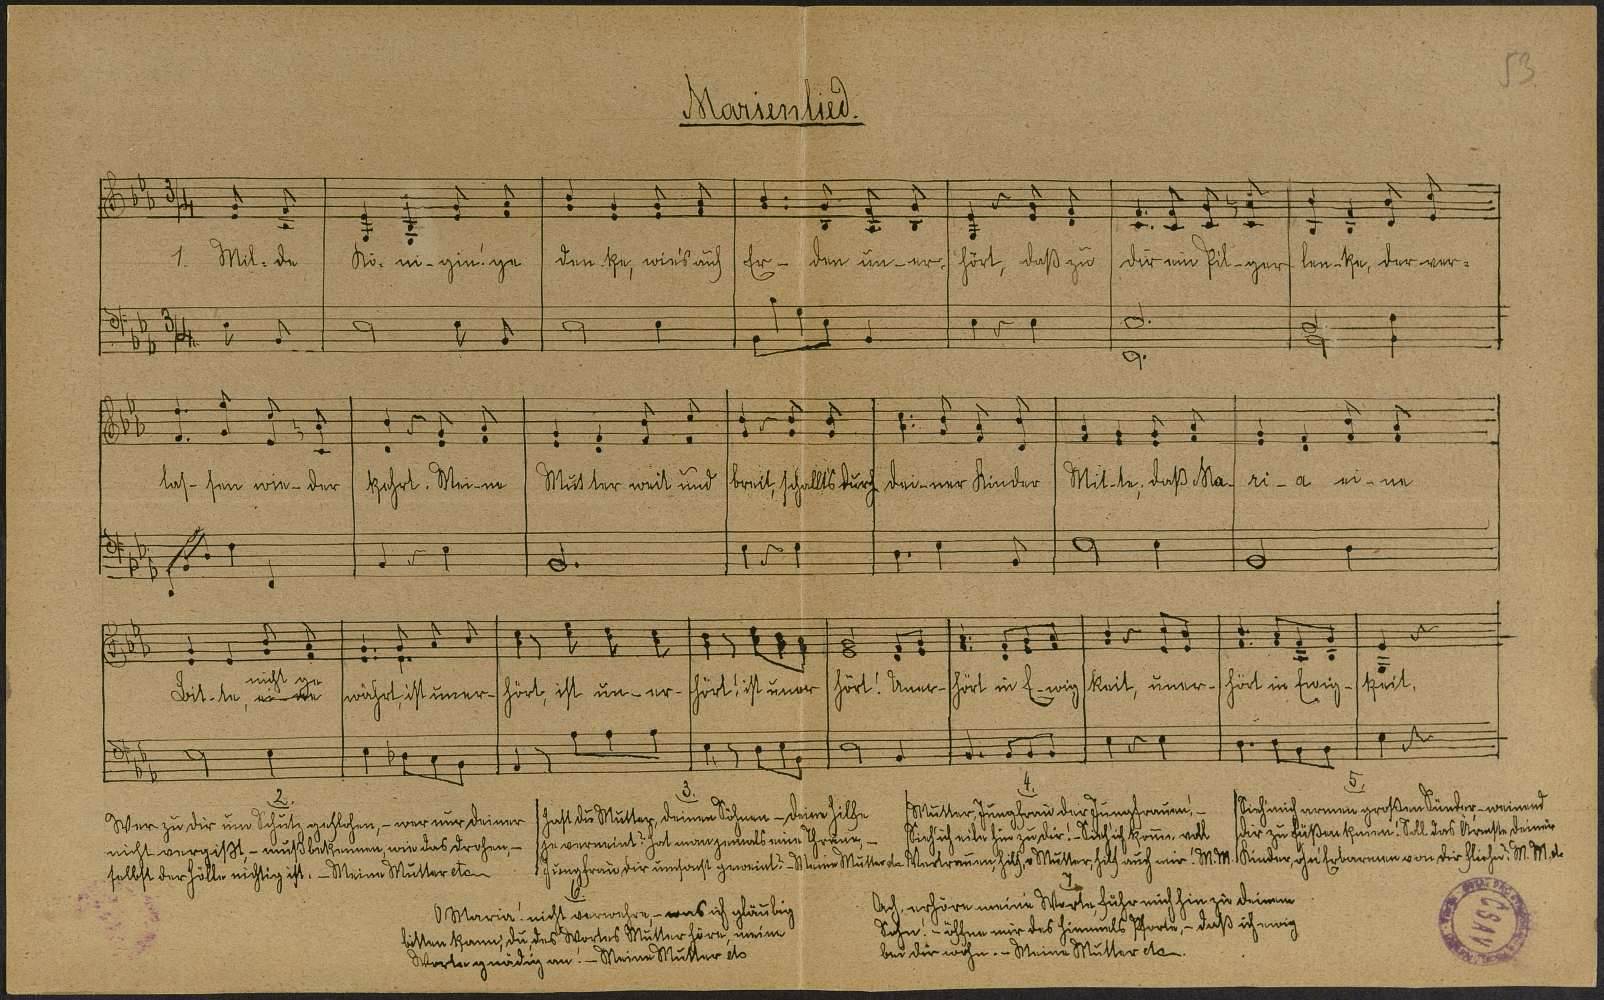 53
Marienlied.
1. Mil-de Kö-ni-gin! ge denke, wie's auf Er-den un-er-hört, daß zu dir ein Pil-ger len-ke, der ver-
las-sen wie-der kehrt. Mei-ne Mutter weit und breit, schallt's durch deiner Kinder Mit-te, daß Ma-ri-a ei-ne
nicht ge
Bit-te, währt, ist uner-hört, ist un-er-hört! ist uner hört! Uner-hört in E-wig keit, uner-hört in Ewig-keit.
2.
Wer zu dir um Schutz geflohen, – wer nur deiner
nicht vergißt, – muß bekennen, wie das Drohen, –
selbst der Hölle nichtig ist. – Meine Mutter etc
3.
Hast du Mutter, deinen Söhnen – deine Hilfe
je verneint? Hat man jemals eine Thräne, –
Jungfrau dir umsonst geweint? – Meine Mutter etc
4.
Mutter, Jungfrau der Jungfrauen! –
Sieh ich eile hin zu dir! – Sieh ich komme voll
Vertrauen, hilf, o Mutter, hilf auch mir! M. M.
5.
Sieh mich armen großen Sünder, – weinend
dir zu Füßen knien. Soll das Ärmste deiner
Kinder, ohn' Erbarmen von dir fliehn? M. M. etc
6
O Maria! nicht verwehre, – was ich gläubig
bitten kann; du, des Wortes Mutter höre, meine
Worte gnädig an! – Meine Mutter etc
7
Ach, erhöre meine Worte, führ mich hin zu deinem
Sohn! – öffne mir des Himmels Pforte, – daß ich ewig
bei dir wohn. – Meine Mutter etc.
ČSAV